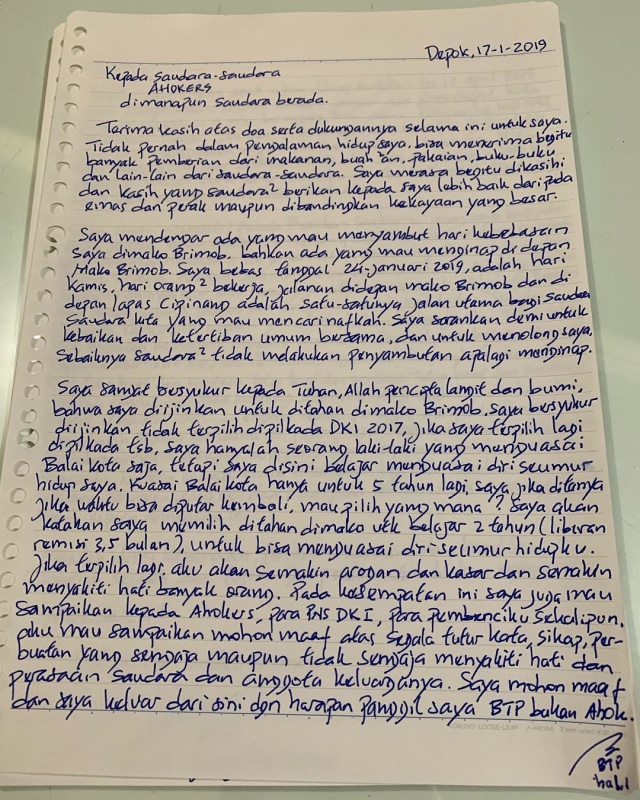 Depok, 17-1-2019
Kepada Saudara-saudara
AHOKERS
dimanapun saudara berada.
Tarima kasih atas doa serta dukungannya selama ini untuk saya.
Tidak pernah dalam pengalaman hidup saya. bisa menerima begitu
banyak pemberian dari makanan, buah²an, pakaian, buku-buku
dan lain-lain dari saudara-saudara. Saya merasa begitu dikasihi
dan kasih yang saudara² berikan kepada saya lebih baik daripada
emas dan perak maupun dibandingkan kekayaan yang besar.
Saya mendengar ada yang mau menyambut hari kebebasan
saya dimako Brimob. bahkan ada yang mau menginap di depan
Mako Brimob. Saya bebas tanggal 24-januari 2019, adalah hari
Kamis, hari orang² bekerja, jalanan didepan mako Brimob dan di
depan lapas Cipinang adalah satu-satunya jalan utama bagi saudara
saudara kita yang mau mencari nafkah. Saya sarankan demi untuk
kebaikan dan ketertiban umum bersama, dan untuk menolong saya,
Sebaiknya saudara² tidak melakukan penyambutan apalagi menginap.
Saya sangat bersyukur kepada Tuhan, Allah pencipta langit dan bumi,
bahwa saya diijinkan untuk ditahan dimako Brimob. saya bersyukur
diijinkan tidak terpilih dipilkada DKI 2017, jika saya terpilih lagi
dipilkada tsb, saya hanyalah seorang laki-laki yang menguasai
Balai kota saja, tetapi saya disini belajar menguasai diri seumur
hidup saya. Kuasai Balai kota hanya untuk 5 tahun lagi, saya jika ditanya
jika waktu bisa diputar kembali, mau pilih yang mana? Saya akan
katakan saya memilih ditahan dimako utk belajar 2 tahun (liburan
remisi 3,5 bulan), untuk bisa menguasai diri seumur hidupku.
Jika terpilih lagi, aku akan semakin arogan dan kasar dan semakin
menyakiti hati banyak orang. Pada kesempatan ini saya juga mau
sampaikan kepada Ahokers, para PNS DKI, para pembenciku sekalipun,
aku mau sampaikan mohon maaf atas segala tutur kata, sikap, per-
buatan yang sengaja maupun tidak sengaja menyakiti hati dan
perasaan saudara dan anggota keluarganya. Saya mohon maaf
dan saya keluar dari sini dgn harapan panggil saya BTP bukan Ahok.
BTP